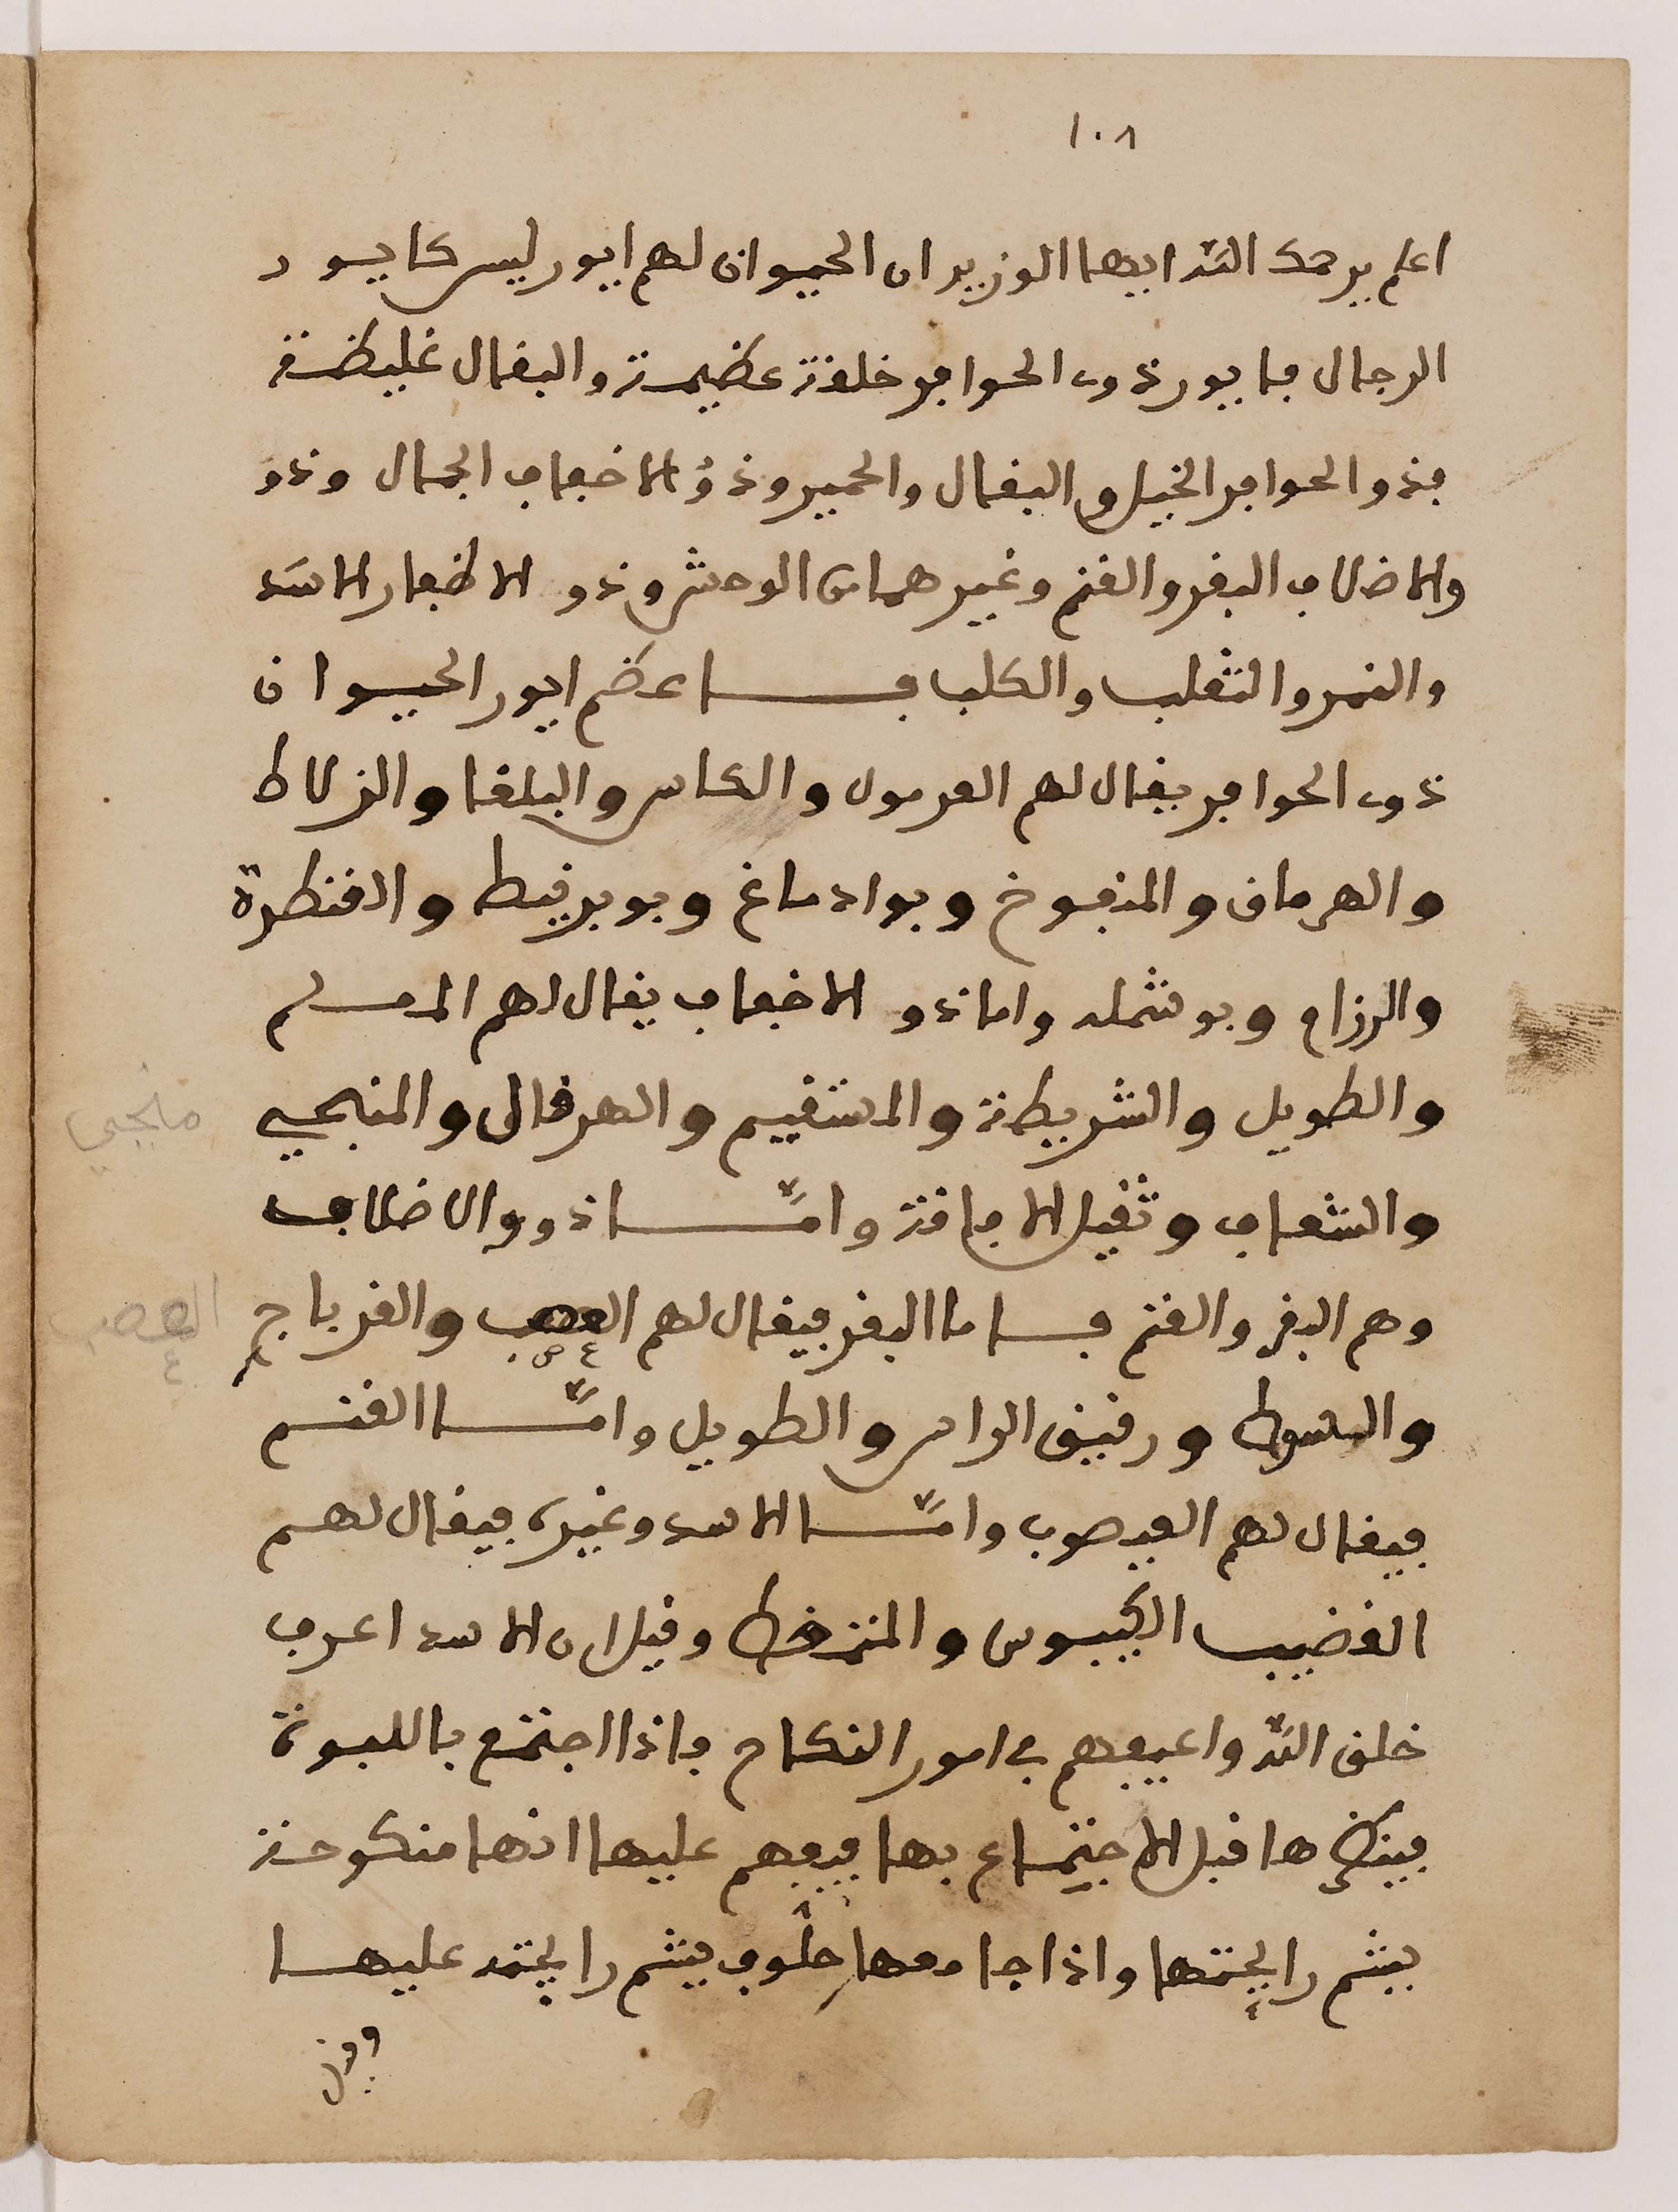 ١٠٨
اعلم يرحمك الله ايها الوزير ان الحيوان لهم ايور ليس كايور
الرجال فايور ذوي الحوافر خلقة عظيمة والبغال غليظة
فذو الحوافر الخيل والبغال والحمير وذوُ الاخفاف الجمال وذو
والاضلاف البقر والغنم وغيرهما من الوحش وذو الاظفار الاسَد
والنمر والثعلب والكلب فاعظم ايور الحيوان
ذوي الحوافر يقال لهم الغرمول والكاس والبلغا والزلاط
والهرماق والمنفوخ وبوادماغ وبوبرنيطه والقنطرة
والرزام وبوشمله واما ذو الاخفاف يقال لهم المسلم
والطويل والشريطة والمستقيم والهرقال والمنجحي
والشعاف وثقيل الافاقة وامّا ذووالاضلاف
وهم البقر والغنم فاما البقر فيقال لهم العصب والقرباج
والسوط ورقيق الراس والطويل وامّا الغنم
فيقال لهم العيصوب وامّا الاسد وغيره فيقال لهم
القضيب الكيبوس والمتمخط وقيل ان الاسد اعرف
خلق الله وافيقهم في امور النكاح فاذا اجتمع باللبوة
فينظرها قبل الاجتماع بها فيفهم عليها انها منكوحة
فيشم رايحتها واذا جامعها حلّوف فيشم رايحته عليها
وقيل
ملجي
العصب
ع